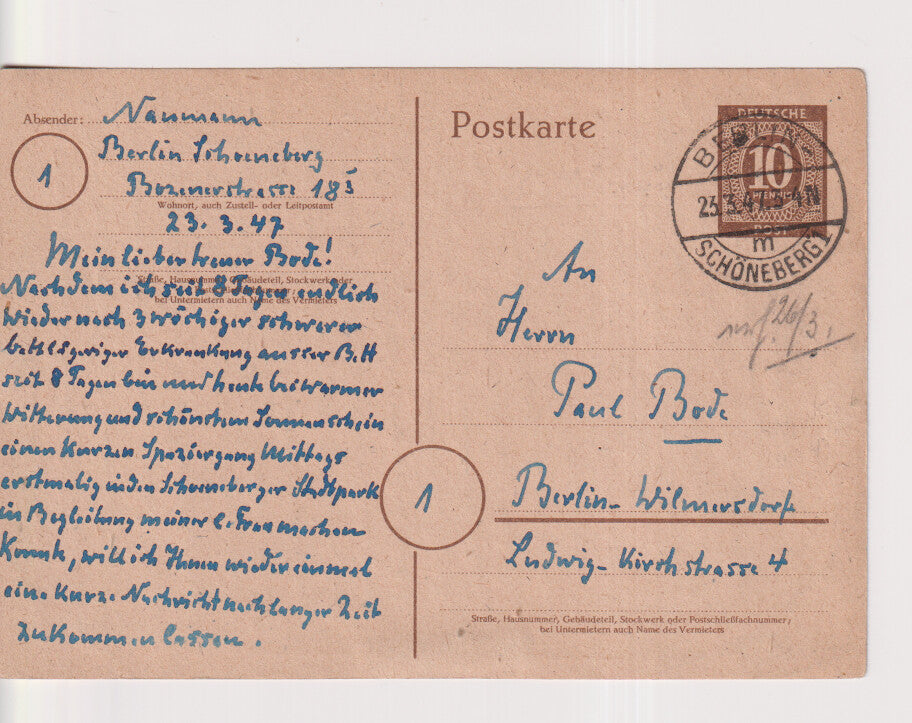 Absender: Naumann
Berlin Schoeneberg
1
Bozenerstrasse 18 I
Wohnort, auch Zustell- oder Leitpostamt
23. 3. 47
Mein lieber treuer Bode!
Straße, Hausnummer, Gebäudeteil, Stockwerk oder
bei Untermietern auch Name des Vermieters
Nachdem ich seit 8 Tagen endlich
wieder nach 3 wöchiger schwerer
Erkrankung ausser Bett
seit 8 Tagen bin und heute bei warmer
Witterung und schönstem Sonnenschein
einen kurzen Spaziergang Mittags
erstmalig in den Schoeneberger Stadtpark
in Begleitung meiner l. Frau machen
konnte, will ich Ihnen wieder einmal
eine kurze Nachricht nach langer Zeit
zukommen lassen.
Postkarte
DEUTSCHE
10
PFENNIG
23.3.47
m
SCHÖNEBERG 1
26/3.
An
Herrn
Paul Bode
1
Berlin-Wilmersdorf
Ludwig-Kirchstrasse 4
Straße, Hausnummer, Gebäudeteil, Stockwerk oder Postschließfachnummer;
bei Untermietern auch Name des Vermieters